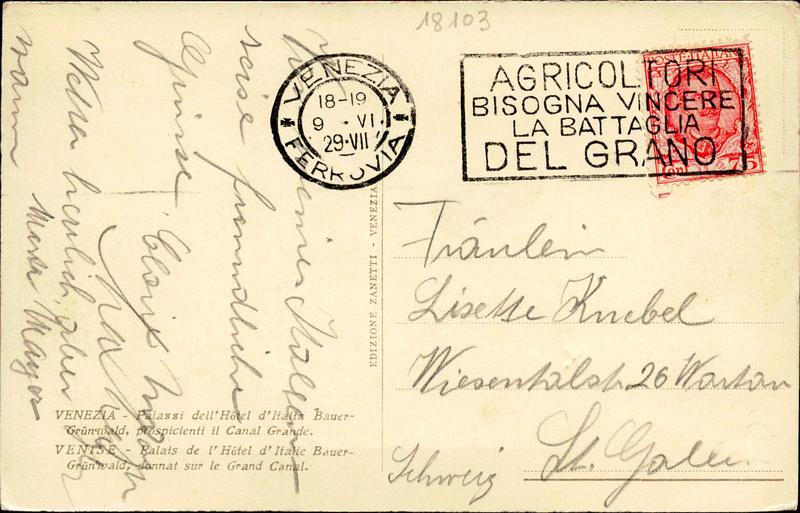 18103
VENEZIA
18-19
9 VI
29·VII
FERROVIA
AGRICOLTORI
BISOGNA VINCERE
LA BATTAGLIA
DEL GRANO
POSTE ITALIANE
75
Cent
meiner Italien
reise freundliche
Grüsse
Wetter herrlich aber
warm
Mayer
EDIZIONE ZANETTI - VENEZIA
VENEZIA - Palazzi dell'Hôtel d'Italia Bauer-
Grünwald, prospicienti il Canal Grande.
VENISE - Palais de l'Hôtel d'Italie Bauer-
Grünwald, donnat sur le Grand Canal.
Fräulein
Lisette Knebel
Wiesentalstr 26 Wartau
St. Gallen
Schweiz